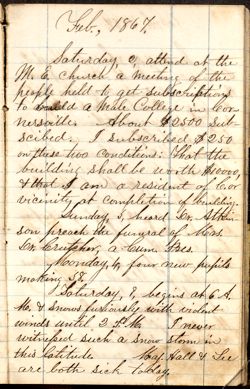 Feb., 1867.
Saturday, 2, attend at the
M. E. church a meeting of the
people held to get subscriptions
to build a Male College in Cov
About $2500 sub-
scribed. I subscribed $250
on these two conditions: That the
building shall be worth $10000,
& that I am a resident of C. or
vicinity at completion of building.
Sunday, 3, heard Dr.
preach the funeral of Mrs.
Dr. Crutcher, a Cum. Pres.
Monday, 4, four new pupils
making 58.
Saturday, 8, begins at 6 A.
M. & snows furiously with violent
winds until 2 P. M. I never
witnessed such a snow storm in
this latitude. Hall & Lee
are both sick today.